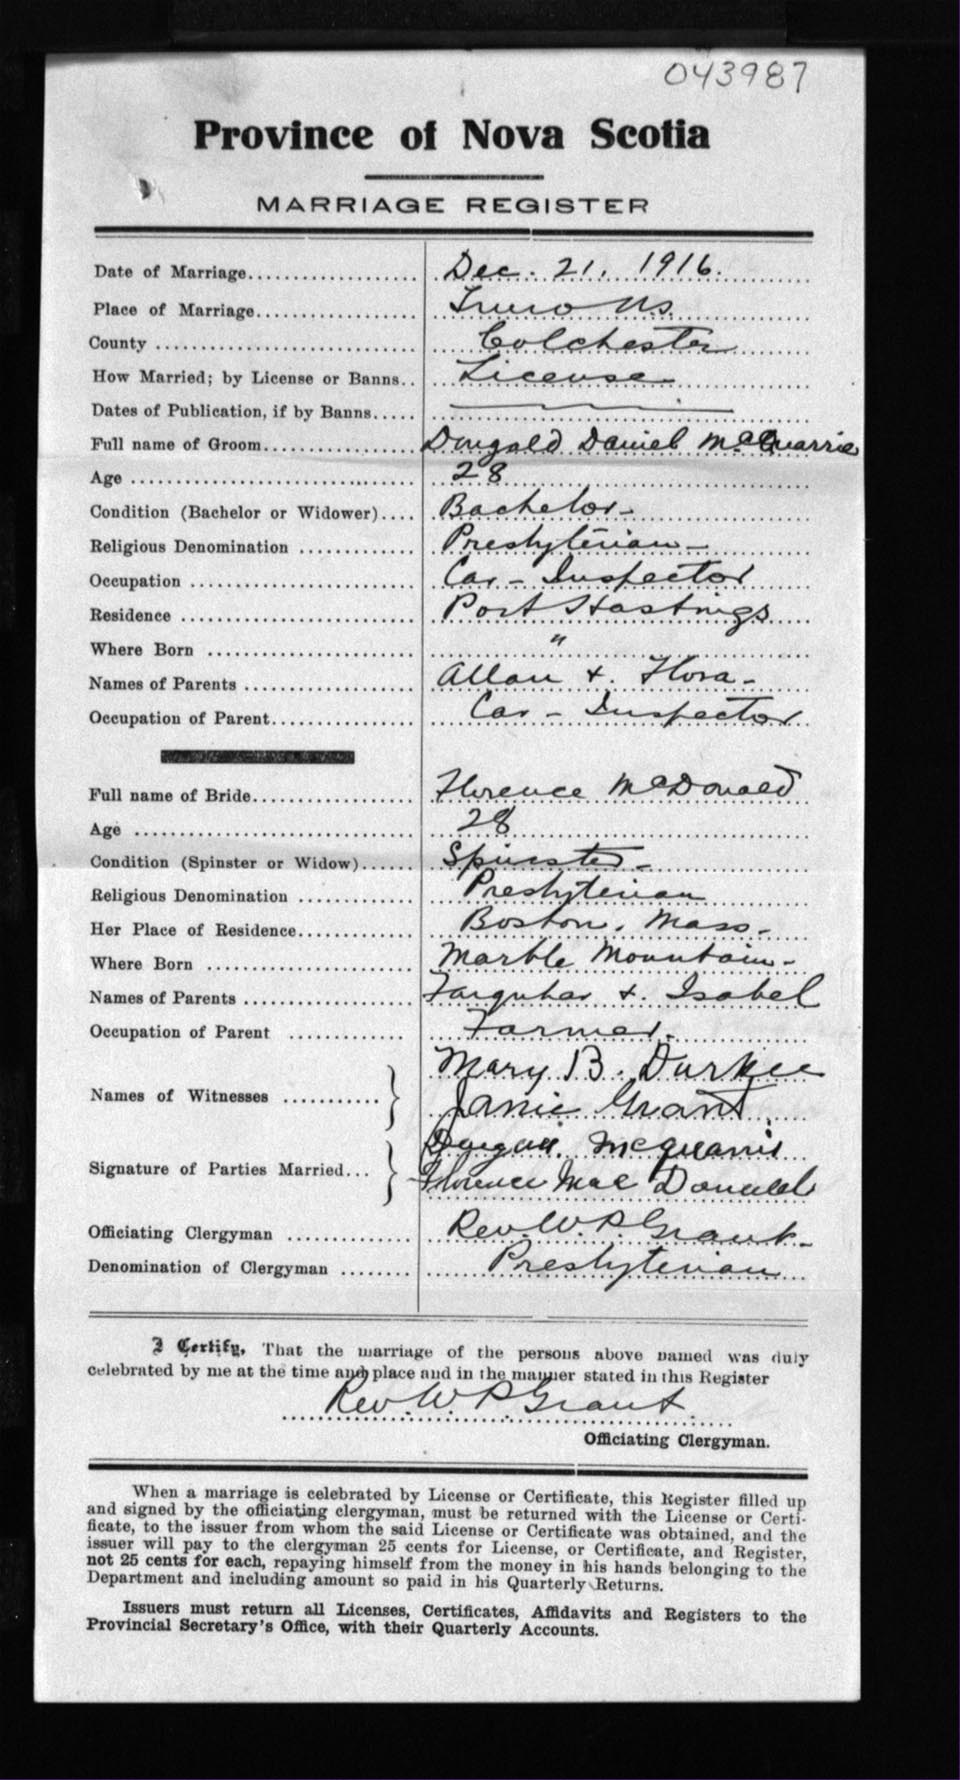 043987
Province of Nova Scotia
MARRIAGE REGISTER
Date of Marriage.................... Dec. 21. 1916.
Place of Marriage................... Truro N.S.
County .............................. Colchester
How Married; by License or Banns.. License
Dates of Publication, if by Banns.....
Full name of Groom.................. Dougald Daniel McQuarrie
Age ................................. 28
Condition (Bachelor or Widower).... Bachelor -
Religious Denomination ............. Presbyterian -
Occupation .......................... Car - Inspector
Residence ........................... Port Hastings
Where Born ......................... "
Names of Parents ................... Allan +. Flora -
Occupation of Parent................ Car - Inspector
Full name of Bride................... Florence McDonald
Age ................................. 28
Condition (Spinster or Widow)...... Spinster -
Religious Denomination ............. Presbyterian
Her Place of Residence............. Boston. Mass -
Where Born ......................... Marble Mountain -
Names of Parents ................... Farquhar +. Isabel
Occupation of Parent .............. Farmer.
Names of Witnesses ........... } Mary B. Durkee
Janie Grant
Signature of Parties Married... } McQuarrie
Florence Mac Donald
Officiating Clergyman .............. Rev. W. P. Grant -
Denomination of Clergyman ........ Presbyterian
I Certify, That the marriage of the persons above named was duly
celebrated by me at the time and place and in the manner stated in this Register
Rev. W. P. Grant
Officiating Clergyman.
When a marriage is celebrated by License or Certificate, this Register filled up
and signed by the officiating clergyman, must be returned with the License or Certi-
ficate, to the issuer from whom the said License or Certificate was obtained, and the
issuer will pay to the clergyman 25 cents for License, or Certificate, and Register,
not 25 cents for each, repaying himself from the money in his hands belonging to the
Department and including amount so paid in his Quarterly Returns.
Issuers must return all Licenses, Certificates, Affidavits and Registers to the
Provincial Secretary's Office, with their Quarterly Accounts.